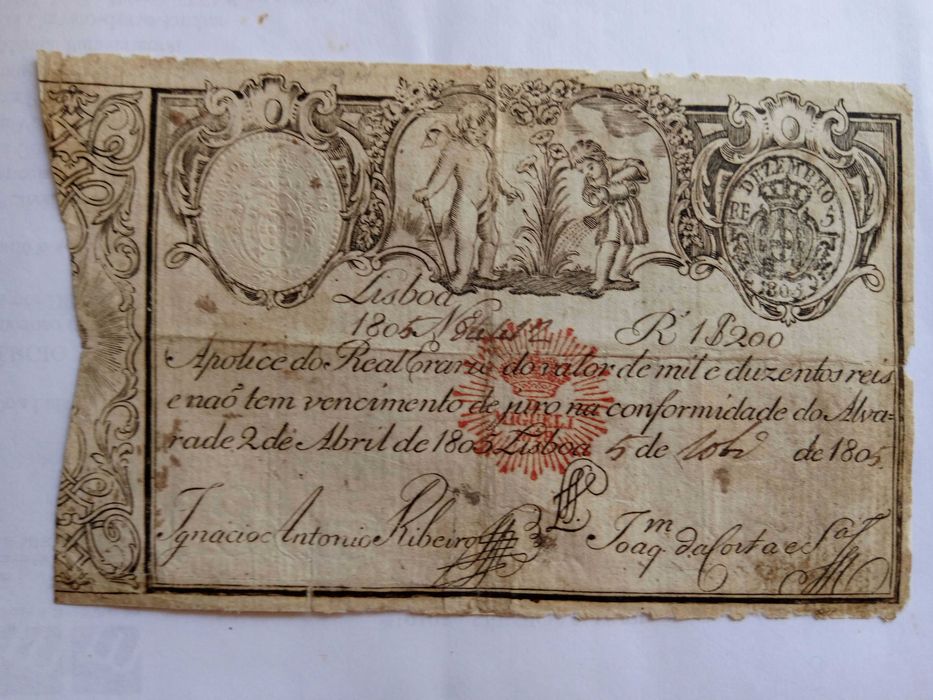 DEZEMBRO 5
RE
1805
Lisboa
1805 N
Rˢ 1$200
Apolice do Real Erario do valor de mil e duzentos reis
e naõ tem vencimento de juro na conformidade do Alva-
rade 2 de Abril de 1805 Lisboa 5 de de 1805
MIGUEL I
Ignacio Antonio Ribeiro
Joaqᵐ da Costa e Sª